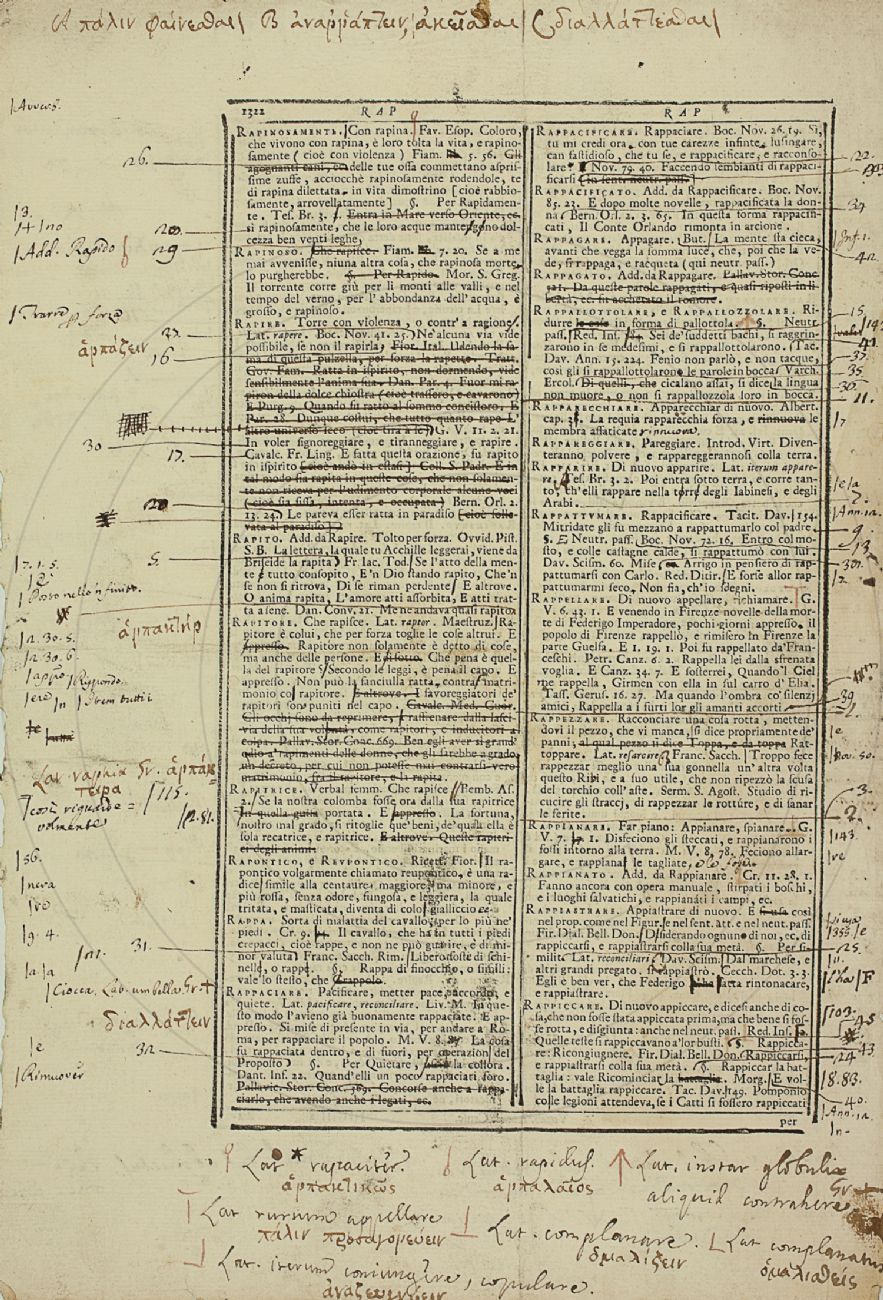 A πάλιν φαίνεσθαι B ἀναῤῥάπτειν, ἀκεῖσθαι C διαλλάττεσθαι
1322 RAP
RAPINOSAMENTE. Con rapina. Fav. Esop. Coloro,
che vivono con rapina, è loro tolta la vita, e rapino-
samente (cioè con violenza) Fiam. 5. 36. Gli
agognanti cani, co delle tue ossa commettano aspris-
sime zuffe, acciocchè rapinosamente rodendole, te
di rapina dilettata in vita dimostrino [cioè rabbio-
samente, arrovellatamente] §. Per Rapidamen-
te. Tes. Br. 3. Entra in Mare verso Oriente, ec.
sì rapinosamente, che le loro acque mantengono dol-
cezza ben venti leghe,
RAPINOSO. Che rapisce. Fiam. 7. 20. Se a me
mai avvenisse, niuna altra cosa, che rapinosa morte,
lo purgherebbe. §. Per Rapido. Mor. S. Greg.
Il torrente corre giù per li monti alle valli, e nel
tempo del verno, per l'abbondanza dell'acqua, è
grosso, e rapinoso.
RAPIRE. Torre con violenza, o contr'a ragione.
Lat. rapere. Boc. Nov. 41. 25. Nè alcuna via vide
possibile, se non il rapirla. Fior. Ital. Udendo la fa-
ma di questa pulzella, per forza la rapette. Tratt.
Gov. Fam. Ratta in ispirito, non dormendo, vide
sensibilmente l'anima sua. Dan. Par. 4. Fuor mi ra-
piron della dolce chiostra (cioè trassero, e cavarono)
E Purg. 9. Quando fu ratto al sommo concistoro. E
Par. 28. Dunque costui, che tutto quanto rape L'
altro universo seco (cioè tira a se) G. V. 11. 2. 21.
In voler signoreggiare, e tiranneggiare, e rapire.
Cavalc. Fr. Ling. E fatta questa orazione, fu rapito
in ispirito (cioè andò in estasi) Coll. S. Padr. E in
tal modo fia rapita in queste cose, che non solamen-
te non riceva per l'udimento corporale alcune voci
(cioè fia fissa, intenta, e occupata) Bern. Orl. 2.
13. 24. Le pareva esser ratto in paradiso (cioè solle-
vata al paradiso)
RAPITO. Add. da Rapire. Tolto per forza. Ovvid. Pist.
S. B. La lettera, la quale tu Acchille leggerai, viene da
Briseida la rapita) Fr Iac. Tod. Se l'atto della men-
te è tutto consopito, E'n Dio stando rapito, Che'n
se non si ritrova, Di se riman perdente/ E altrove.
O anima rapita, L'amore atti assorbita, E atti rat-
ta a sene. Dan. Conv. 21. Me ne andava quasi rapito
RAPITORE. Che rapisce. Lat. raptor. Maestruz. Ra-
pitore è colui, che per forza toglie le cose altrui. E
appresso. Rapitore non solamente è detto di cose,
ma anche delle persone. E di sotto. Che pena è quel-
la del rapitore? Secondo le leggi, è pena il capo. E
appresso. Non può la fanciulla ratta, contra matri-
monio col rapitore. E altrove. I favoreggiatori de'
rapitori son puniti nel capo. Cavalc. Med. Cuor.
Gli occhi sono da reprimere, e raffrenare dalla lasci-
via della sua volontà, come rapitori, e inducitori a
colpa. Pallav. Stor. Conc. 669. Ben egli aver sì grand'
odio a' rapimenti delle donne, che gli sarebbe a grado
un decreto, per cui non potesse mai contrarsi vero
matrimonio, fra il rapitore, e la rapita.
RAPITRICE. Verbal femm. Che rapisce Pemb. As.
2. Se la nostra colomba fosse ora dalla sua rapitrice
In quella guisa portata. E appresso. La fortuna,
nostro mal grado, si ritoglie que'beni, de'quali ella è
sola recatrice, e rapitrice. E altrove. Queste rapitri-
ci degli animi.
RAPONTICO, e REUPONTICO. Ricett. Fior. Il ra-
pontico volgarmente chiamato reupontico, è una ra-
dice simile alla centaurea maggiore, ma minore, e
più rossa, senza odore, fungosa, e leggiera, la quale
tritata, e masticata, diventa di color gialliccio
RAPPA. Sorta di malattia del cavallo, per lo più ne'
piedi. Cr. 9. Il cavallo, che ha in tutti i piedi
crepacci, cioè rappe, e non ne può guarire, è di mi-
nor valuta) Franc. Sacch. Rim. Libero fosse di schi-
nelle, o rappe. §. Rappa di finocchio, o simili:
vale lo stesso, che Grappolo.
RAPPACIARE. Pacificare, metter pace, accordo, e
quiete. Lat. pacificare, reconciliare. Liv. M. In que-
sto modo l'avieno già buonamente rappaciate. E ap-
presso. Si mise di presente in via, per andare a Ro-
ma, per rappaciare il popolo. M. V. 8. La cosa
fu rappaciata dentro, e di fuori, per operazion del
Proposto) §. Per Quietare, la collora.
Dant. Inf. 22. Quand'elli un poco rappaciati foro.
Pallavic. Stor. Conc. 369. Concorse anche a rappa-
ciarlo, che avendo anche i legati, ec.
RAP
RAPPACIFICARE. Rappaciare. Boc. Nov. 26. 19. Sì,
tu mi credi ora, con tue carezze infinte, lusingare,
can fastidioso, che tu se, e rappacificare, e racconso-
lare? Nov. 79. 40. Faccendo sembianti di rappaci-
ficarsi (In sent. neutr. pass.)
RAPPACIFICATO. Add. da Rappacificare. Boc. Nov.
85. 23. E dopo molte novelle, rappacificata la don-
na. Bern. Orl. 2. 3. 65. In questa forma rappacifi-
cati, Il Conte Orlando rimonta in arcione.
RAPPAGARE. Appagare. But. La mente sta cieca,
avanti che vegga la somma luce, che, poi che la ve-
de, si rappaga, e racqueta (qui neutr. pass.).
RAPPAGATO. Add. da Rappagare. Pallav. Stor. Conc
321. Da queste parole rappagati, e quasi riposti in li-
bertà, ec. si acchetato il romore.
RAPPALLOTTOLARE, e RAPPALLOZZOLARE. Ri-
durre le cose in forma di pallottola. §. Neutr.
pass. Red. Ins. Sei de'suddetti bachi, si raggrin-
zarono in se medesimi, e si rappallottolarono. §. Tac.
Dav. Ann. 15. 224. Fenio non parlò, e non tacque,
così gli si rappallottolarono le parole in bocca. Varch.
Ercol. Di quelli, che cicalano assai, si dice la lingua
non muore, o non si rappallozzola loro in bocca.
RAPPARECCHIARE. Apparecchiar di nuovo. Albert.
cap. 38. La requia rapparecchia forza, e rinnuova le
membra affaticate rinnuova.
RAPPAREGGIARE. Pareggiare. Introd. Virt. Diven-
teranno polvere, e rappareggerannosi colla terra.
RAPPARIRE. Di nuovo apparire. Lat. iterum appare-
re. Tes Br. 3. 2. Poi entra sotto terra, e corre tan-
to, ch'elli rappare nella terra degli Iabinesi, e degli
Arabi.
RAPPATTUMARE. Rappacificare. Tacit. Dav. 154.
Mitridate gli fu mezzano a rappattumarlo col padre.
§. E Neutr. pass. Boc. Nov. 72. 16. Entro col mo-
sto, e colle castagne calde, si rappattumò con lui.
Dav. Scism. 60. Mise Arrigo in pensiero di rap-
pattumarsi con Carlo. Red. Ditir. E forse allor rap-
pattumarmi seco, Non fia, ch'io sdegni.
RAPPELLARE. Di nuovo appellare, richiamare. G.
V. 6. 43. 1. E venendo in Firenze novelle della mor-
te di Federigo Imperadore, pochi giorni appresso, il
popolo di Firenze rappellò, e rimiseso in Firenze la
parte Guelfa. E 1. 19. 1. Poi fu rappellato da'Fran-
ceschi. Petr. Canz. 6. 2. Rappella lei dalla sfrenata
voglia. E Canz. 34. 7. E sofferrei, Quando'l Ciel
ne rappella, Girmen con ella in sul carro d'Elia.
Tass. Gerus. 16. 27. Ma quando l'ombra co'silenzj
amici, Rappella a i furti lor gli amanti accorti
RAPPEZZARE. Racconciare una cosa rotta, metten-
dovi il pezzo, che vi manca, si dice propriamente de'
panni, al qual pezzo si dice Toppa, e da toppa Rat-
toppare. Lat. resarcire. Franc. Sacch. Troppo fece
rappezzar meglio una sua gonnella un'altra volta
questo Ribi, e a suo utile, che non ripezzò la scusa
del torchio coll'aste. Serm. S. Agost. Studio di ri-
cucire gli straccj, di rappezzar le rotture, e di sanar
le ferite.
RAPPIANARE. Far piano: Appianare, spianare. G.
V. 7. 1. Disfeciono gli steccati, e rappianarono i
fossi intorno alla terra. M. V. 8. 78. Feciono allar-
gare, e rappianar le tagliate,
RAPPIANATO. Add. da Rappianare. Cr. 11. 28. 1.
Fanno ancora con opera manuale, stirpati i boschi,
e i luoghi salvatichi, e rappianati i campi, ec.
RAPPIASTRARE. Appiastrare di nuovo. E s'usa così
nel prop. come nel Figur. e nel sent. att. e neut. pass.
Fir. Dial. Bell. Don. Desiderando ognuno di noi, ec. di
rappiccarsi, e rappiastrarsi colla sua metà. §. Per si-
milit. Lat. reconciliari. Dav. Scism. Dal marchese, e
altri grandi pregato, si rappiastrò. Cecch. Dot. 3. 3.
Egli e ben ver, che Federigo fatta rintonacare,
e rappiastrare.
RAPPICCARE. Di nuovo appiccare, e dicesi anche di co-
sa, che non fosse stata appiccata prima, ma che bene si fos-
se rotta, e disgiunta: anche nel neut. pass. Red. Ins.
Quelle teste si rappiccavano a'lor busti. §. Rappicca-
re: Ricongiugnere. Fir. Dial. Bell. Don. Rappiccarsi,
e rappiastrarsi colla sua metà. §. Rappiccar la bat-
taglia: vale Ricominciar la battaglia. Morg. E vol-
le la battaglia rappiccare. Tac. Dav. 149. Pomponio
colle legioni attendeva, se i Catti si fossero rappiccati
per
26.
20.
29
Add. Rapido
ἁρπάζειν
16
30
17.
20
5.
ἁρπακτήρ
31.
Ciocca
διαλλάττειν
32.
Rimuover
Lat. rapaciter.
ἁρπακτικῶς
Lat. rapidus.
ἁρπαλαῖος
Lat. instar globulis
aliquid contrahere.
Lat. rursum appellare
πάλιν προσαγορεύειν
Lat. complanare.
ὁμαλίζειν
Lat. complanatus
ὁμαλισθείς
Lat. iterum coniungere, copulare.
ἀναζευγνύειν